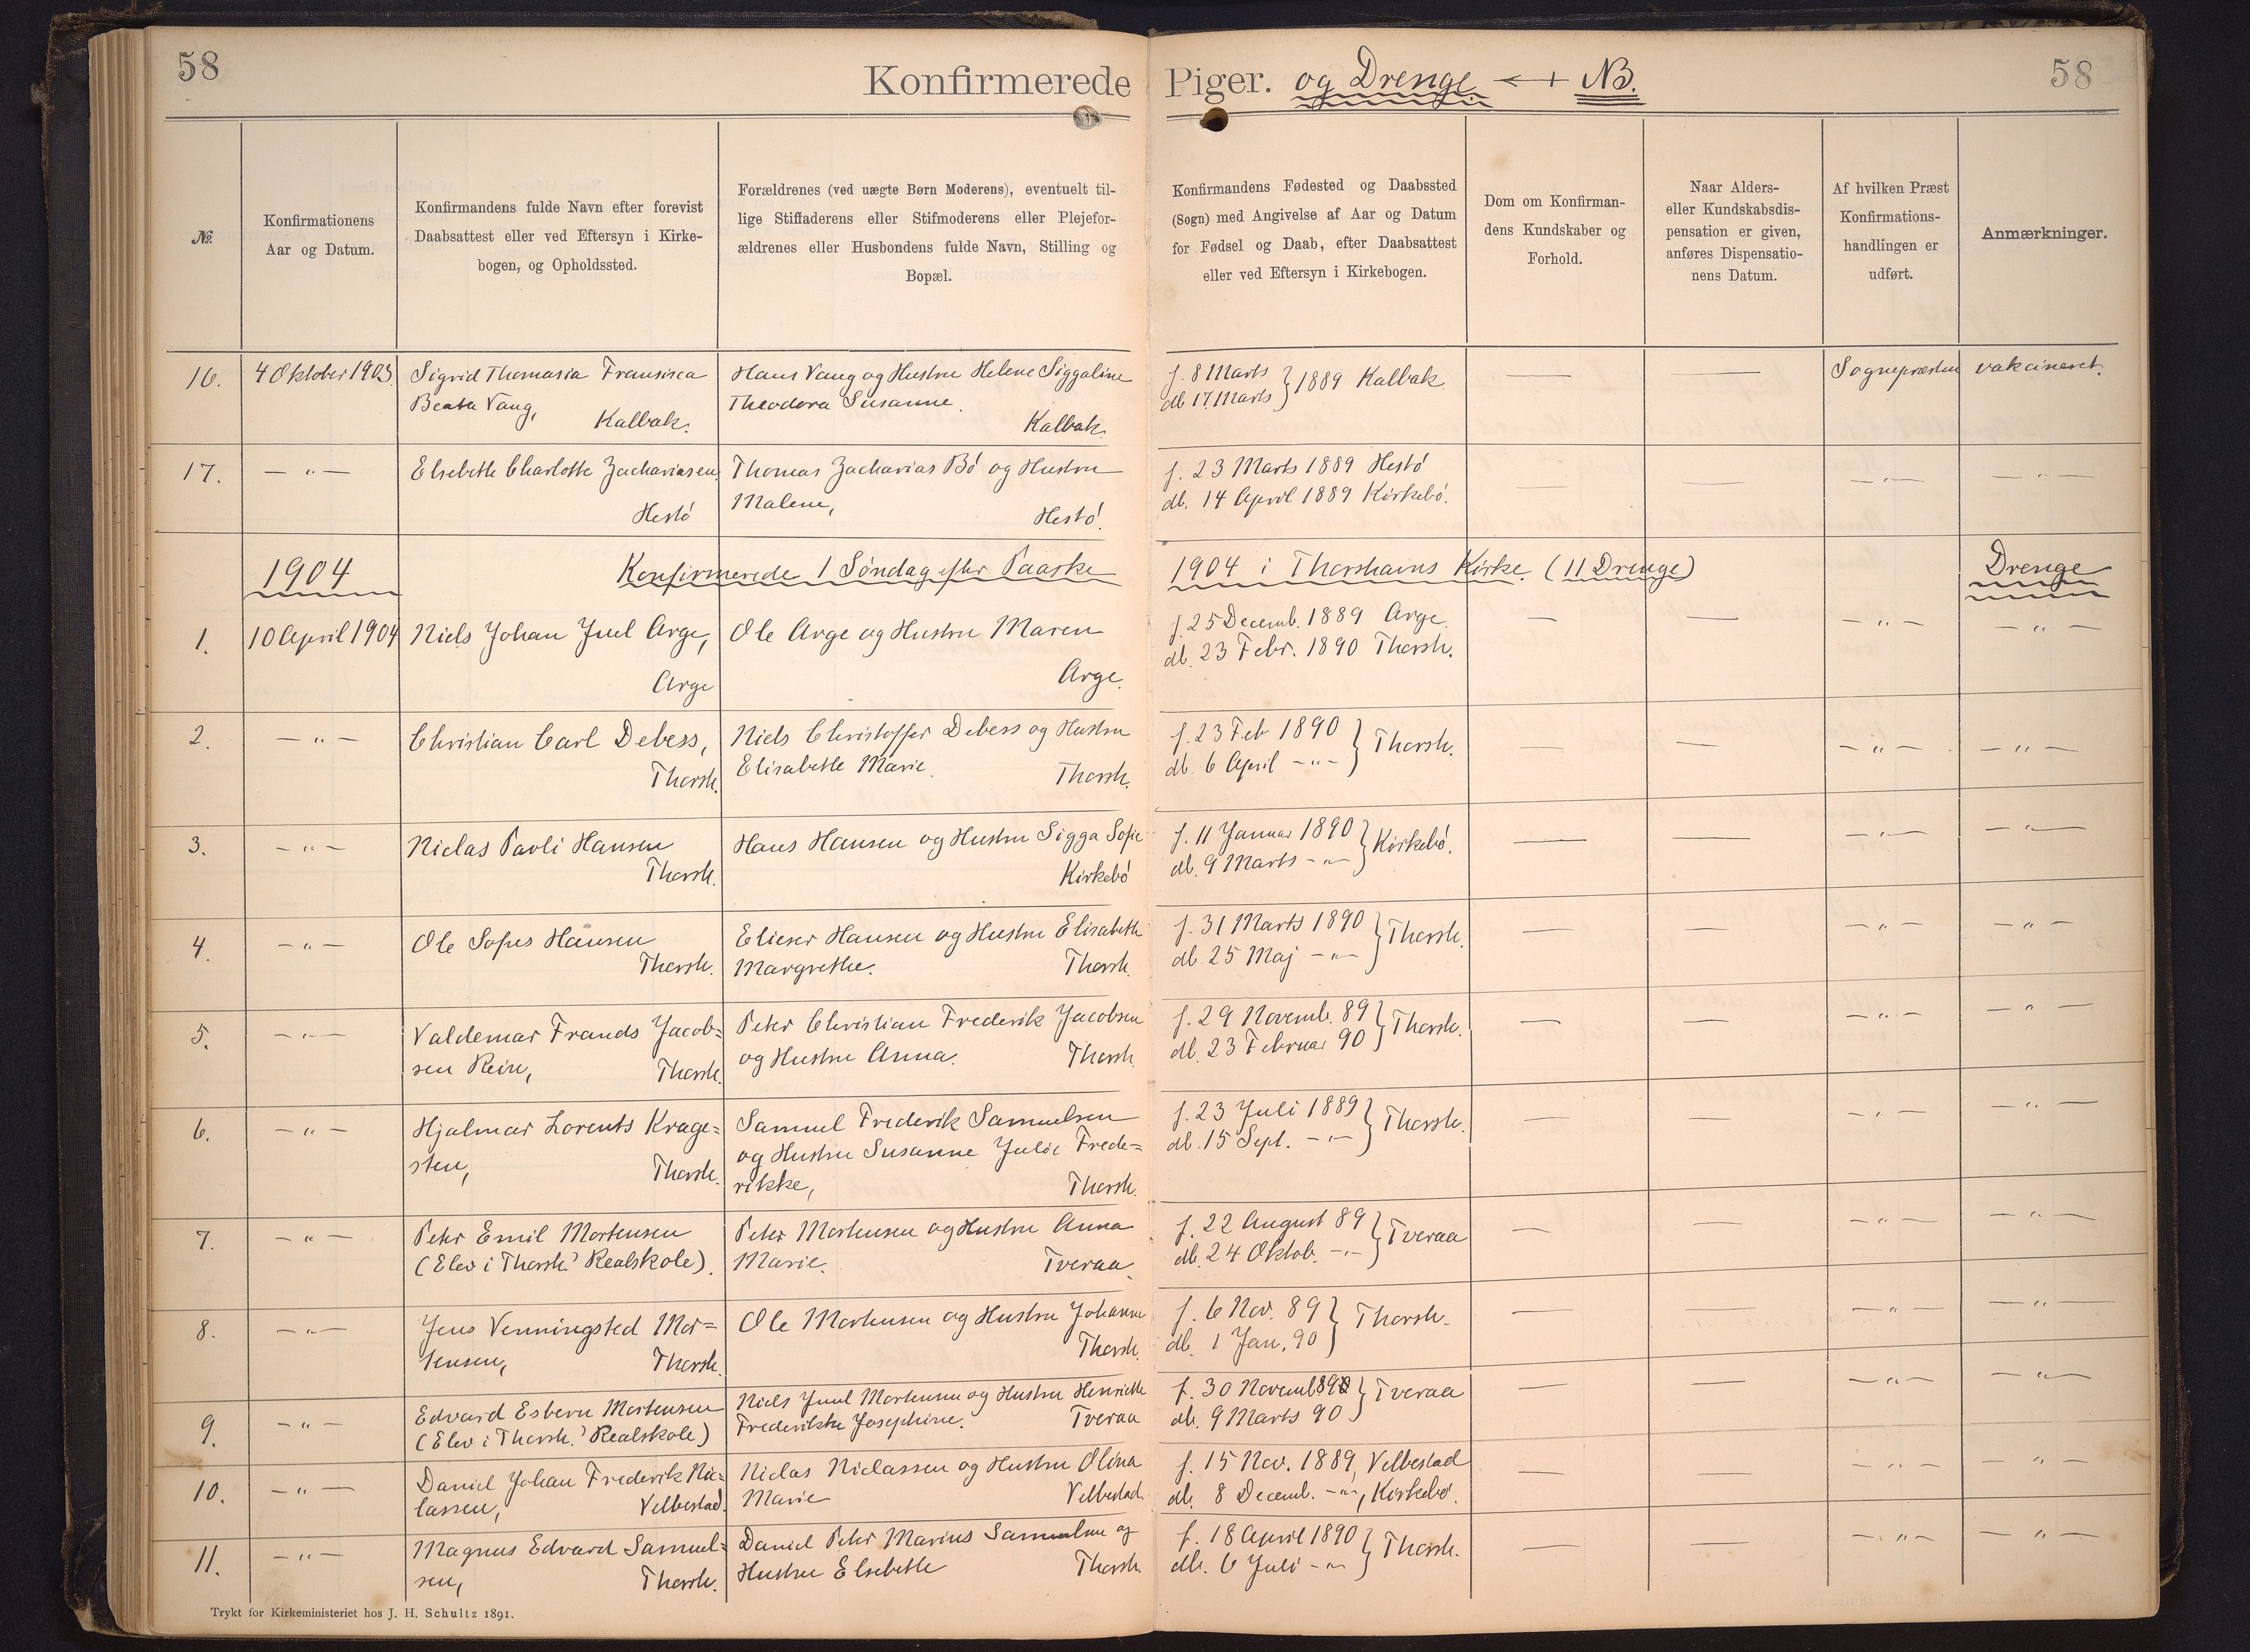 58
Konfirmerede Piger. og Drenge ←+ NB.
58
№.
Konfirmationens
Aar og Datum.
Konfirmandens fulde Navn efter forevist
Daabsattest eller ved Eftersyn i Kirke-
bogen, og Opholdssted.
Forældrenes (ved uægte Børn Moderens), eventuelt til-
lige Stiffaderens eller Stifmoderens eller Plejefor-
ældrenes eller Husbondens fulde Navn, Stilling og
Bopæl.
Konfirmandens Fødested og Daabssted
(Sogn) med Angivelse af Aar og Datum
for Fødsel og Daab, efter Daabsattest
eller ved Eftersyn i Kirkebogen.
Dom om Konfirman-
dens Kundskaber og
Forhold.
Naar Alders-
eller Kundskabsdis-
pensation er given,
anføres Dispensatio-
nens Datum.
Af hvilken Præst
Konfirmations-
handlingen er
udført.
Anmærkninger.
16.
4 Oktober 1903
Sigrid Thomasia Fransisca
Beata Vang,
Kalbak.
Hans Vang og Hustru Helene Siggaline
Theodora Susanne.
Kalbak.
f. 8 Marts
db 17. Marts } 1889 Kalbak
—
—
Sognepræsten
vakcineret.
17.
— " —
Elsebeth Charlotte Zachariasen,
Hestö
Thomas Zacharias Bö og Hustru
Malene,
Hestö.
f. 23 Marts 1889 Hestö
db. 14 April 1889 Kirkebö.
—
—
— " —
— " —
1904
Konfirmerede 1 Söndag efter Paaske 1904 i Thorshavns Kirke. (11 Drenge)
Drenge
1.
10 April 1904
Niels Johan Juul Arge,
Arge
Ole Arge og Hustru Maren
Arge.
f. 25 Decemb. 1889 Arge.
db. 23 Febr. 1890 Thorsh.
—
—
— " —
— " —
2.
— " —
Christian Carl Debess,
Thorsh.
Niels Christoffer Debess og Hustru
Elisabeth Marie.
Thorsh.
f. 23 Feb 1890
db. 6 April — " — } Thorsh.
—
—
— " —
— " —
3.
— " —
Niclas Pavli Hansen
Thorsh.
Hans Hansen og Hustru Sigga Sofie
Kirkebö
f. 11 Januar 1890
db. 9 Marts — " — } Kirkebö.
—
—
— " —
— " —
4.
— " —
Ole Sofus Hansen
Thorsh.
Elieser Hansen og Hustru Elisabeth
Margrethe.
Thorsh.
f. 31 Marts 1890
db. 25 Maj — " — } Thorsh.
—
—
— " —
— " —
5.
— " —
Valdemar Frands Jacob=
sen Rein,
Thorsh.
Peter Christian Frederik Jacobsen
og Hustru Anna.
Thorsh
f. 29 Novemb. 89
db. 23 Februar 90 } Thorsh.
—
—
— " —
— " —
6.
— " —
Hjalmar Lorents Krage=
sten,
Thorsh.
Samuel Frederik Samuelsen
og Hustru Susanne Julie Frede=
rikke,
Thorsh.
f. 23 Juli 1889
db. 15 Sept. — " — } Thorsh.
—
—
— " —
— " —
7.
— " —
Peter Emil Mortensen
(Elev i Thorsh.' Realskole).
Peter Mortensen og Hustru Anna
Marie.
Tveraa.
f. 22 August 89
db. 24 Oktob. — " — } Tveraa
—
—
— " —
— " —
8.
— " —
Jens Venningsted Mor=
tensen,
Thorsh.
Ole Mortensen og Hustru Johanne
Thorsh.
f. 6 Nov. 89
db. 1 Jan. 90 } Thorsh.
—
—
— " —
— " —
9.
— " —
Edvard Esbern Mortensen
(Elev i Thorsh.' Realskole)
Niels Juul Mortensen og Hustru Henriette
Frederikke Josephine.
Tveraa
f. 30 Novemb
db. 9 Marts 90 } Tveraa
—
—
— " —
— " —
10.
— " —
Daniel Johan Frederik Nic=
lassen,
Velbestad.
Niclas Niclassen og Hustru Olina
Marie
Velbestad.
f. 15 Nov. 1889, Velbestad
db. 8 Decemb. — " —, Kirkebö.
—
—
— " —
— " —
11.
— " —
Magnus Edvard Samuel=
sen,
Thorsh.
Daniel Peter Marius Samuelsen og
Hustru Elsebeth
Thorsh.
f. 18 April 1890
db. 6 Juli — " — } Thorsh.
—
—
— " —
— " —
Trykt for Kirkeministeriet hos J. H. Schultz 1891.